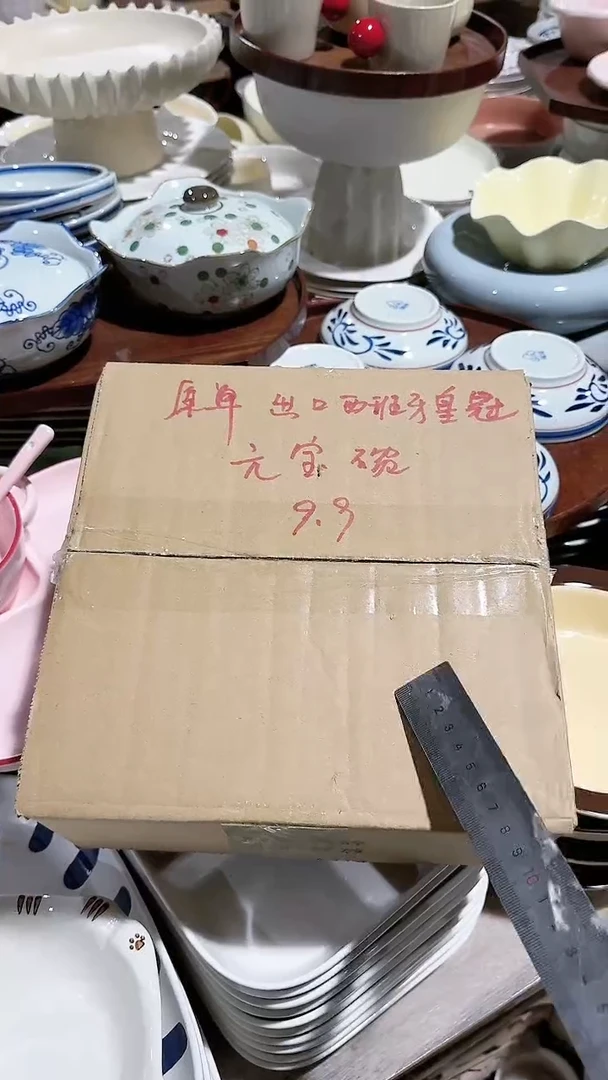 库单 出口西班牙皇冠
元宝碗
9.9
1 2 3 4 5 6 7 8 9 10